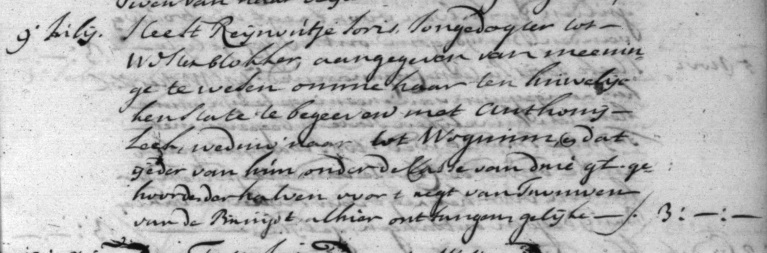 9 July. Heeft Reijnoutje Joris Jongedogter tot
Wester blokker, aangegeven van meenin
ge te wesen omme haar ten huwelijc
ken State te begeeven met Anthonij
weduwenaar tot Wognum, dat
ijder van hun onder de Classe van drie gl. ge
hoorde derhalven voor 't regt van Trouwen
van de Bruijt alhier ontfangen gelijke — ƒ. 3:—:—